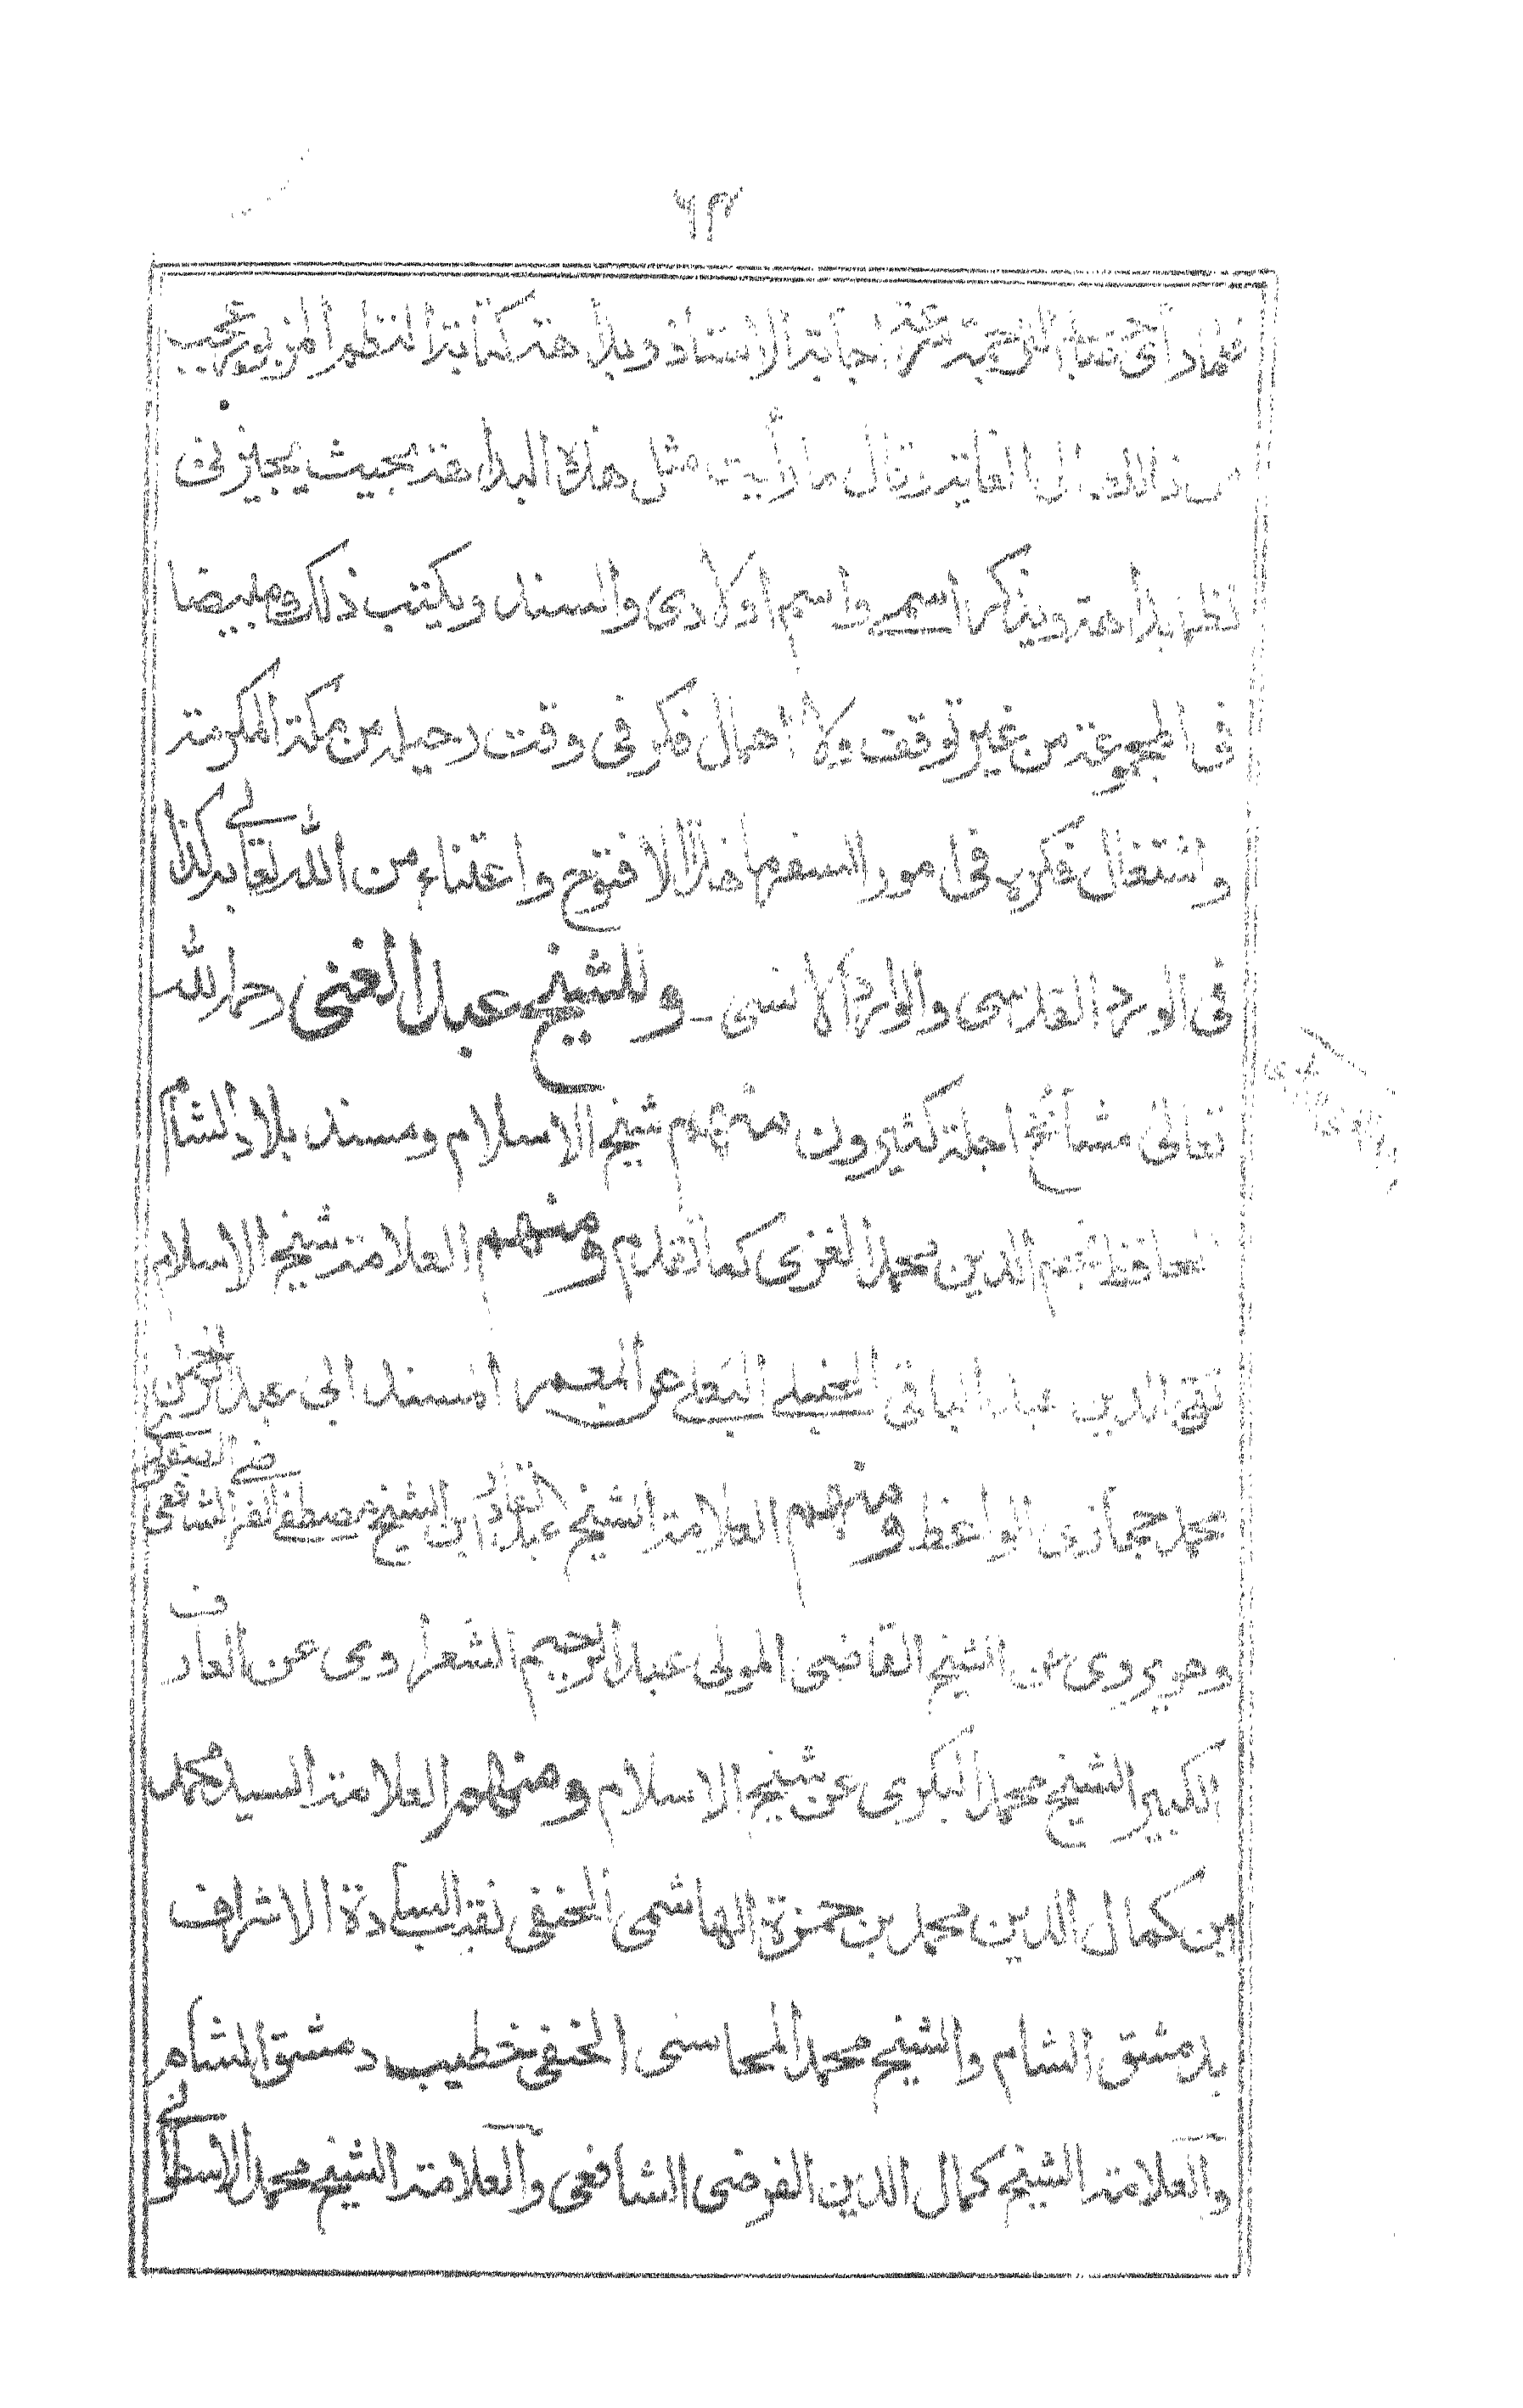 ٦٣
فلما رأى ختنا الترجمة سرعة اجابة الاستاذ وبداهة كتابة النظم المزبور تعجب
من ذالك الى الغاية وقال ما رأيت مثل هذه البداهة بحيث يجيز نى
نظما بداهة ويذكر اسمى واسم اولادى والسند ويكتب ذلك مبيضا
فى المجموعة من غير توقف ولا اهمال فكر فى وقت رحيله من مكة المكرمة
واشتغال فكره فى امور السفر ما هذا الا فتوح واعتناء من الله تعالى به كذا
فى الورد القدسى والوارد الانسى ـ وللشيخ عبد الغنى رحمه الله
تعالى مشائخ اجلة كثيرون منهم شيخ الاسلام ومسند بلاد الشام
الحافظ نجم الدين محمد الغزى كما تقدم ومنهم العلامة شيخ الاسلام
تقى الدين عبد الباقى الحنبلى البعلى عن المعمر المسند ابى عبد الرحمن
محمد حجازى الواعظ ومنهم العلامة الشيخ عبد القادر ابن الشيخ مصطفى الفرضى الصفورى الشافعى
وهو يروى عن الشيخ القاضى المولى عبد الرحيم الشعراوى عن العارف
الكبير الشيخ محمد البكرى عن شيخ الاسلام ومنهم العلامة السيد محمد
ابن كمال الدين محمد بن حمزة الهاشمى الحنفى نقيب السادة الاشراف
بدمشق الشام والشيخ محمد المحاسنى الحنفى خطيب دمشق الشام
والعلامة الشيخ كمال الدين الفرضى الشافعى والعلامة الشيخ محمد الاسطوانى